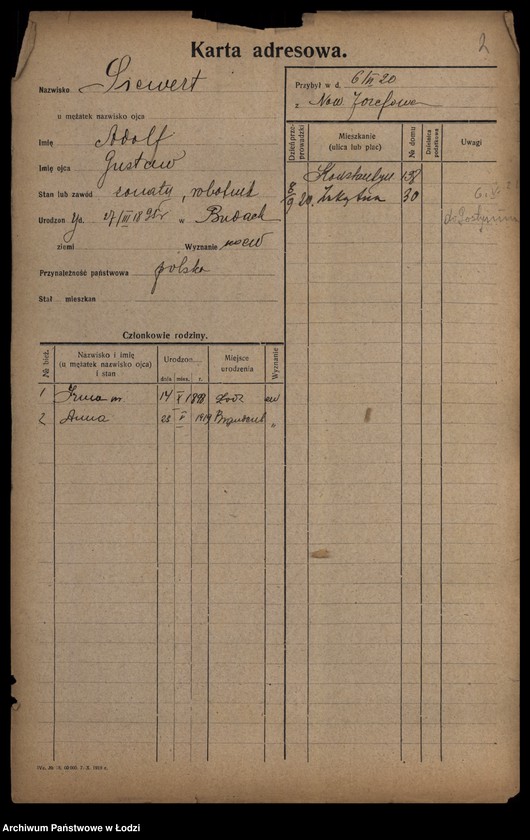 2
Karta adresowa.
Nazwisko Siewert
u mężatek nazwisko ojca
Imię Adolf
Imię ojca Gustaw
Stan lub zawód żonaty, robotnik
Urodzon y d. 27/III 1895 r w
ziemi Wyznanie
Przynależność państwowa polska
Stał mieszkan
Przybył w d. 6/III 20
z Now. Józefowa
Dzień przeprowadzki
Mieszkanie (ulica lub plac)
№ domu
Dzielnica podatkowa
Uwagi
Konstantyn
8/9 20. 30
Członkowie rodziny.
№ bież.
Nazwisko i imię (u mężatek nazwisko ojca) i stan
Urodzon
dnia mies. r.
Miejsce urodzenia
Wyznanie
1 Irma m 14 V 1898 Łódź ew
2 Anna 25 V 1919 "
Archiwum Państwowe w Łodzi